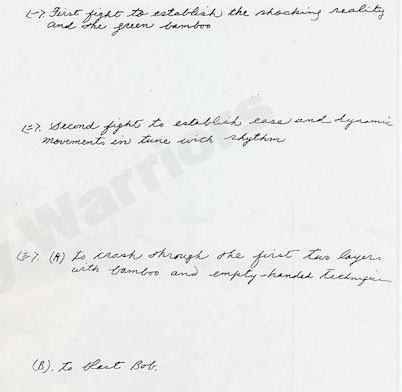 (一). First fight to establish the shocking reality
and the green bamboo
(二). Second fight to establish ease and dynamic
movements in tune with rhythm
(三). (A) to crash through the first two layers
with bamboo and empty-handed technique
(B). to blast Bob.
Warriors